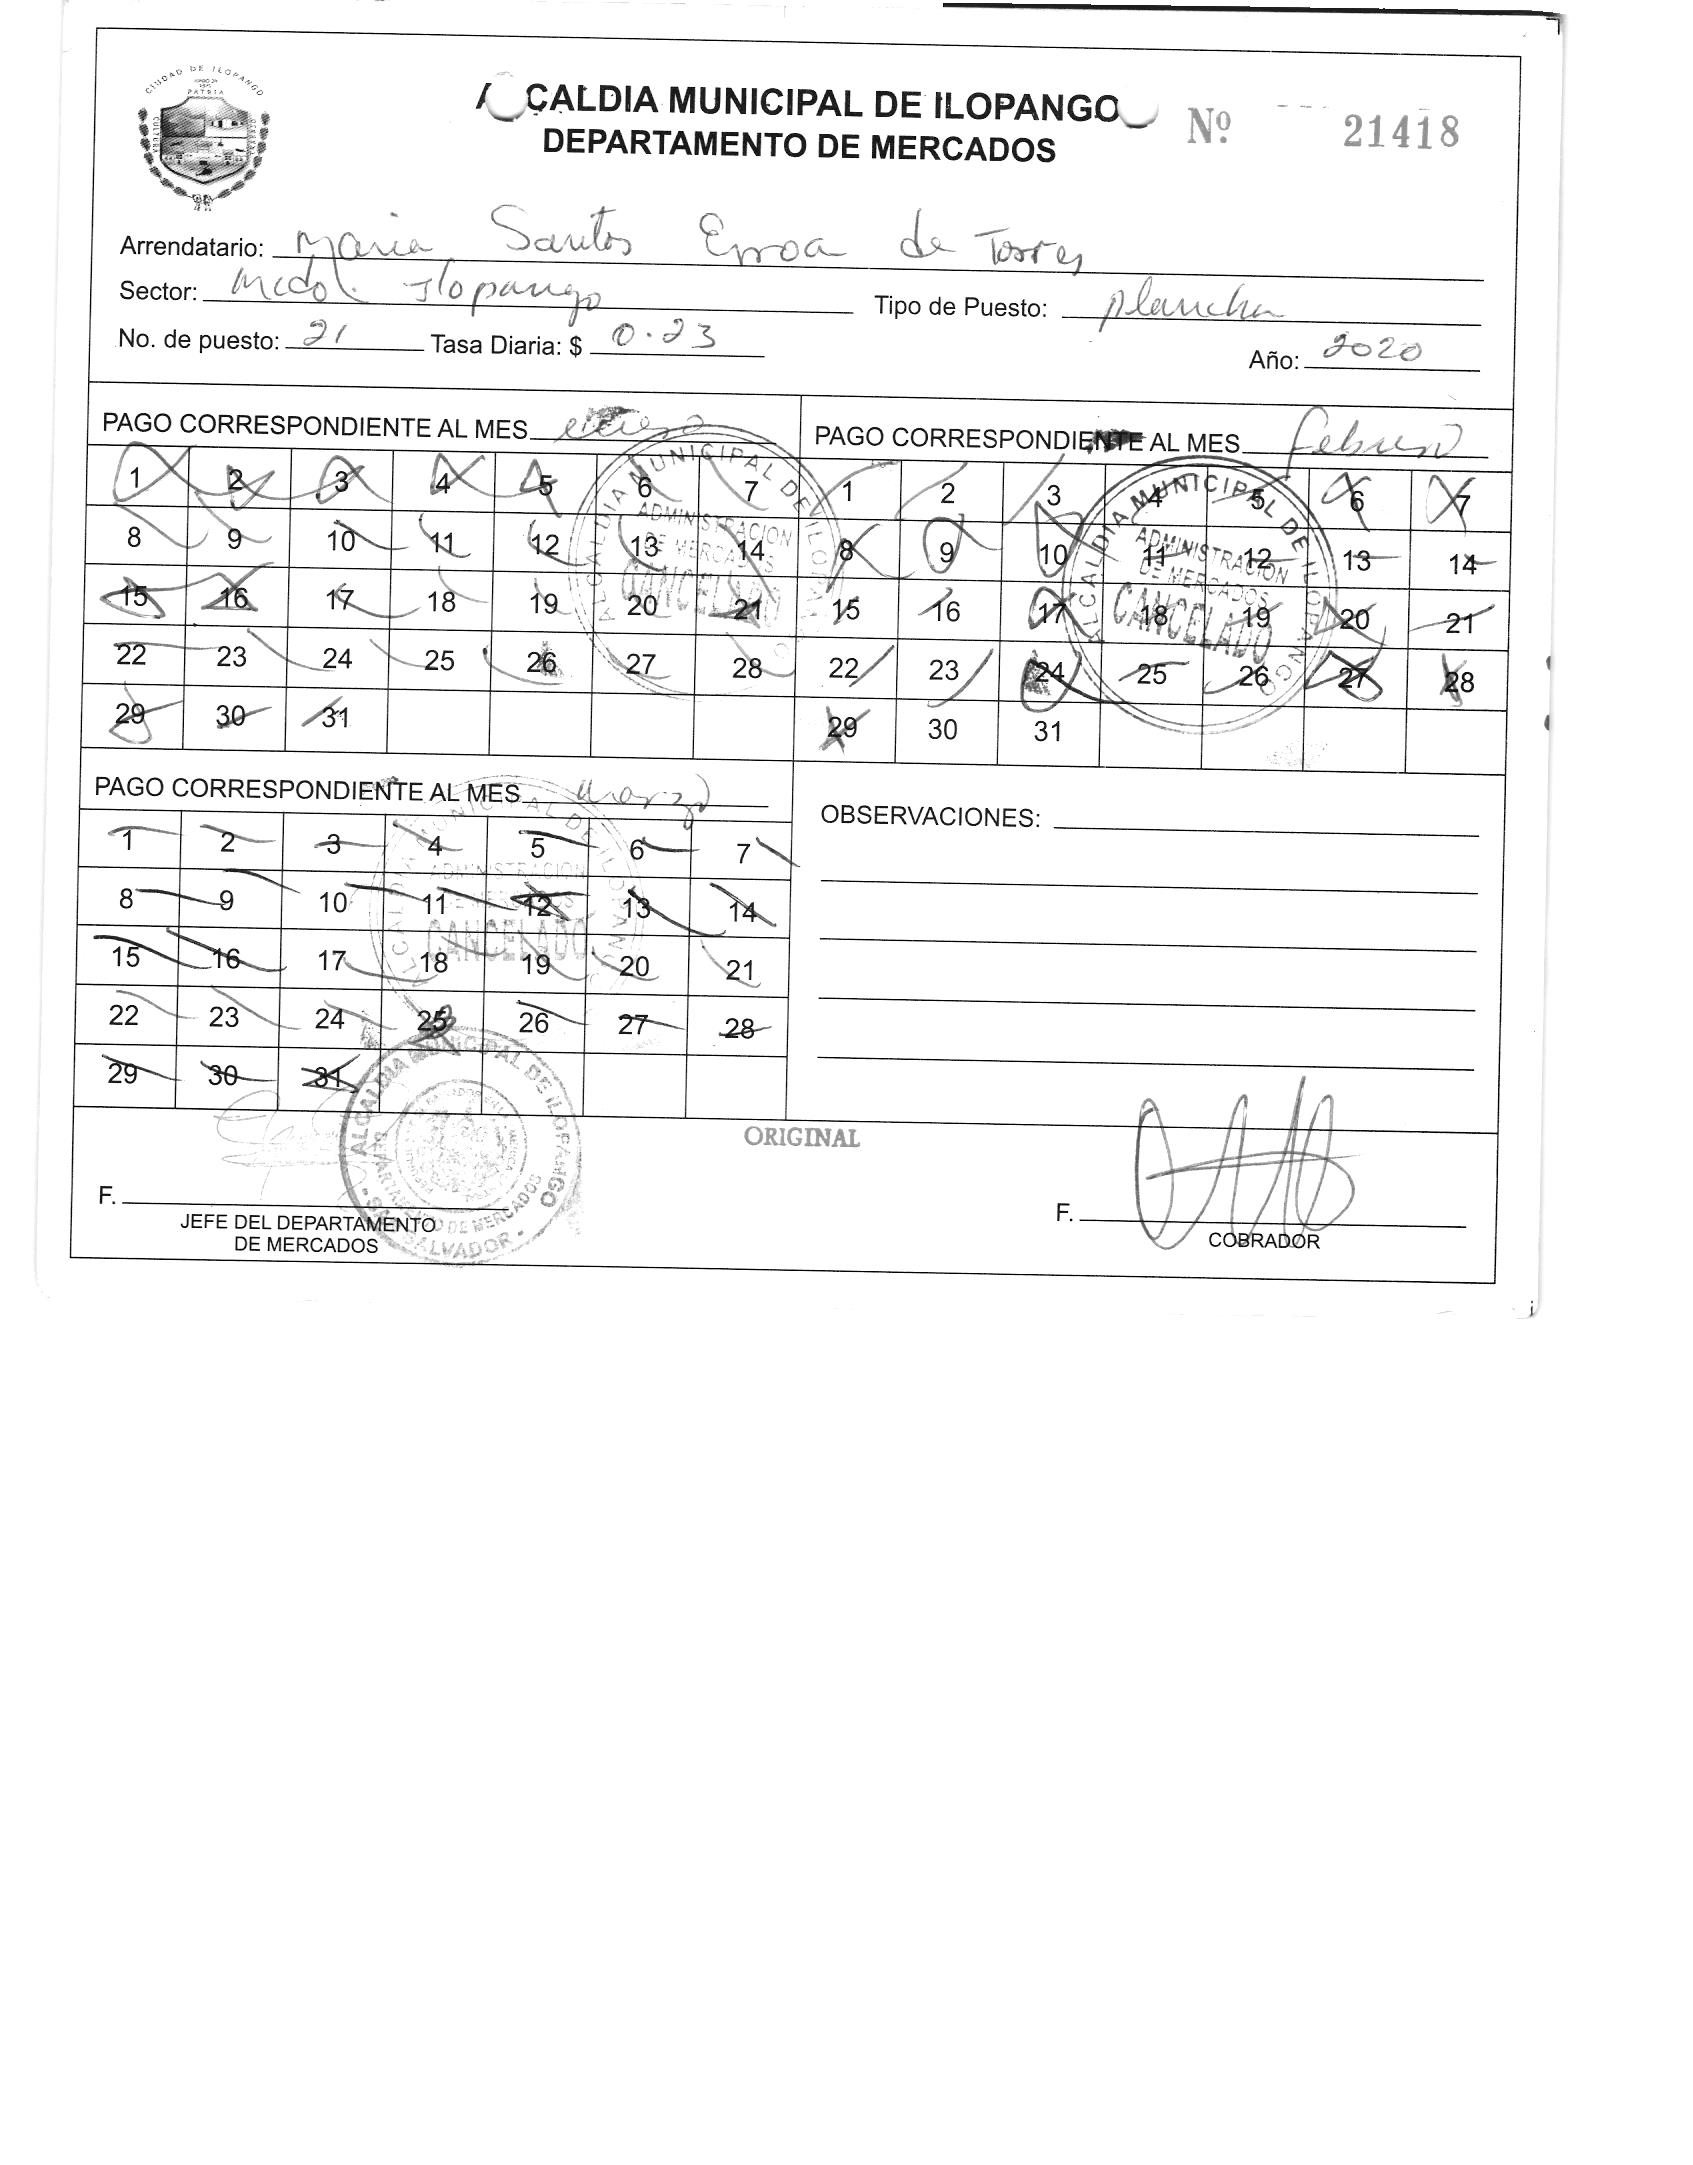 CIUDAD DE ILOPANGO
PATRIA
CULTURA
CALDIA MUNICIPAL DE ILOPANGO
DEPARTAMENTO DE MERCADOS
Nº 21418
Arrendatario: Maria Santos Erroa de Torres
Sector: Mcdo. Ilopango Tipo de Puesto: plancha
No. de puesto: 21 Tasa Diaria: $ 0.23 Año: 2020
PAGO CORRESPONDIENTE AL MES enero
1 2 3 4 5 6 7
8 9 10 11 12 13 14
15 16 17 18 19 20 21
22 23 24 25 26 27 28
29 30 31
ALCALDIA MUNICIPAL DE ILOPANGO
ADMINISTRACION
DE MERCADOS
CANCELADO
PAGO CORRESPONDIENTE AL MES febrero
1 2 3 4 5 6 7
8 9 10 11 12 13 14
15 16 17 18 19 20 21
22 23 24 25 26 27 28
29 30 31
ALCALDIA MUNICIPAL DE ILOPANGO
ADMINISTRACION
DE MERCADOS
CANCELADO
PAGO CORRESPONDIENTE AL MES marzo
1 2 3 4 5 6 7
8 9 10 11 12 13 14
15 16 17 18 19 20 21
22 23 24 25 26 27 28
29 30 31
ALCALDIA MUNICIPAL DE ILOPANGO
ADMINISTRACION
DE MERCADOS
CANCELADO
OBSERVACIONES:
ORIGINAL
ALCALDIA MUNICIPAL DE ILOPANGO
DE MERCADOS
SALVADOR
F.
JEFE DEL DEPARTAMENTO
DE MERCADOS
F.
COBRADOR